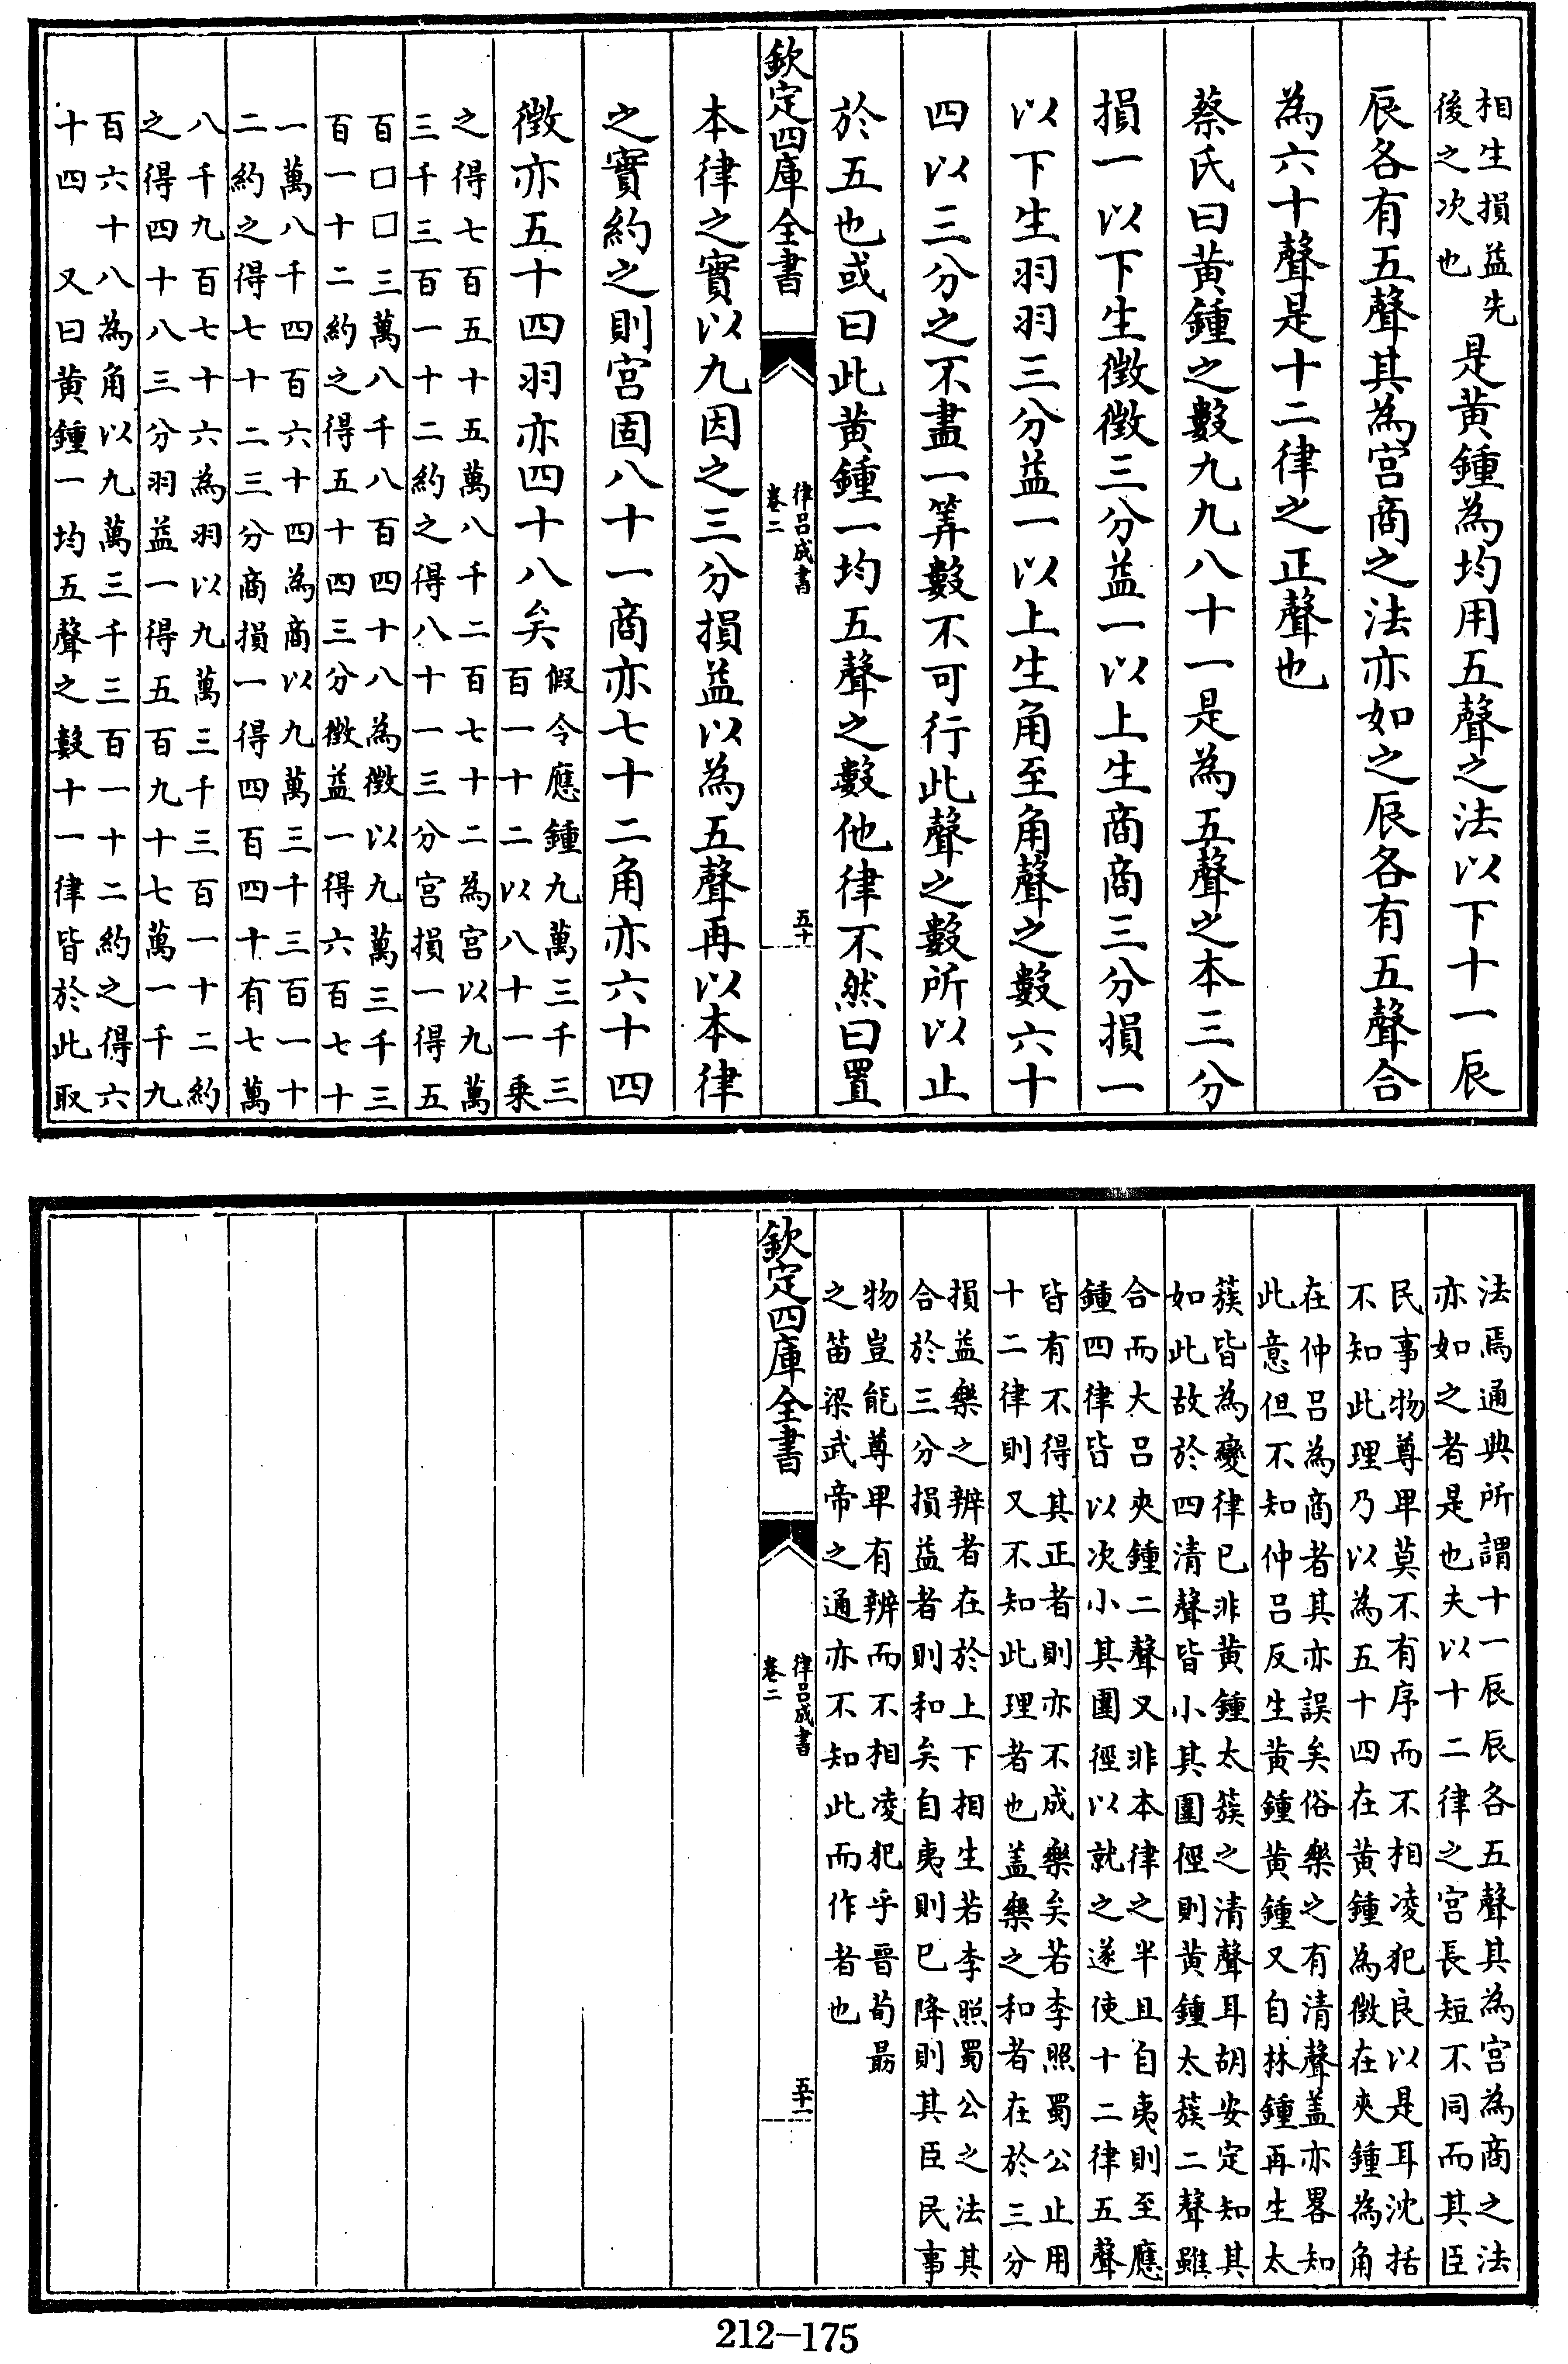 相生損益先
後之次也
是黃鍾為均用五聲之法以下十一辰
辰各有五聲其為宮商之法亦如之辰各有五聲合
為六十聲是十二律之正聲也
蔡氏曰黃鍾之數九九八十一是為五聲之本三分
損一以下生徵徵三分益一以上生商商三分損一
以下生羽羽三分益一以上生角至角聲之數六十
四以三分之不盡一筭數不可行此聲之數所以止
於五也或曰此黃鍾一均五聲之數他律不然曰置
欽定四庫全書
律呂成書
卷二
五十
本律之實以九因之三分損益以為五聲再以本律
之實約之則宮固八十一商亦七十二角亦六十四
徵亦五十四羽亦四十八矣
假令應鍾九萬三千三
百一十二以八十一乘
之得七百五十五萬八千二百七十二為宮以九萬
三千三百一十二約之得八十一三分宮損一得五
百□□三萬八千八百四十八為徵以九萬三千三
百一十二約之得五十四三分徵益一得六百七十
一萬八千四百六十四為商以九萬三千三百一十
二約之得七十二三分商損一得四百四十有七萬
八千九百七十六為羽以九萬三千三百一十二約
之得四十八三分羽益一得五百九十七萬一千九
百六十八為角以九萬三千三百一十二約之得六
十四 又曰黃鍾一均五聲之數十一律皆於此取
法焉通典所謂十一辰辰各五聲其為宮為商之法
亦如之者是也夫以十二律之宮長短不同而其臣
民事物尊卑莫不有序而不相凌犯良以是耳沈括
不知此理乃以為五十四在黃鍾為徵在夾鍾為角
在仲呂為商者其亦誤矣俗樂之有清聲蓋亦畧知
此意但不知仲呂反生黃鍾黃鍾又自林鍾再生太
蔟皆為變律已非黃鍾太蔟之清聲耳胡安定知其
如此故於四清聲皆小其圍徑則黃鍾太蔟二聲雖
合而大呂夾鍾二聲又非本律之半且自夷則至應
鍾四律皆以次小其圍徑以就之遂使十二律五聲
皆有不得其正者則亦不成樂矣若李照蜀公止用
十二律則又不知此理者也蓋樂之和者在於三分
損益樂之辨者在於上下相生若李照蜀公之法其
合於三分損益者則和矣自夷則已降則其臣民事
物豈能尊卑有辨而不相凌犯乎晉荀勗
之笛梁武帝之通亦不知此而作者也
欽定四庫全書
律呂成書
卷二
五十一
212-175